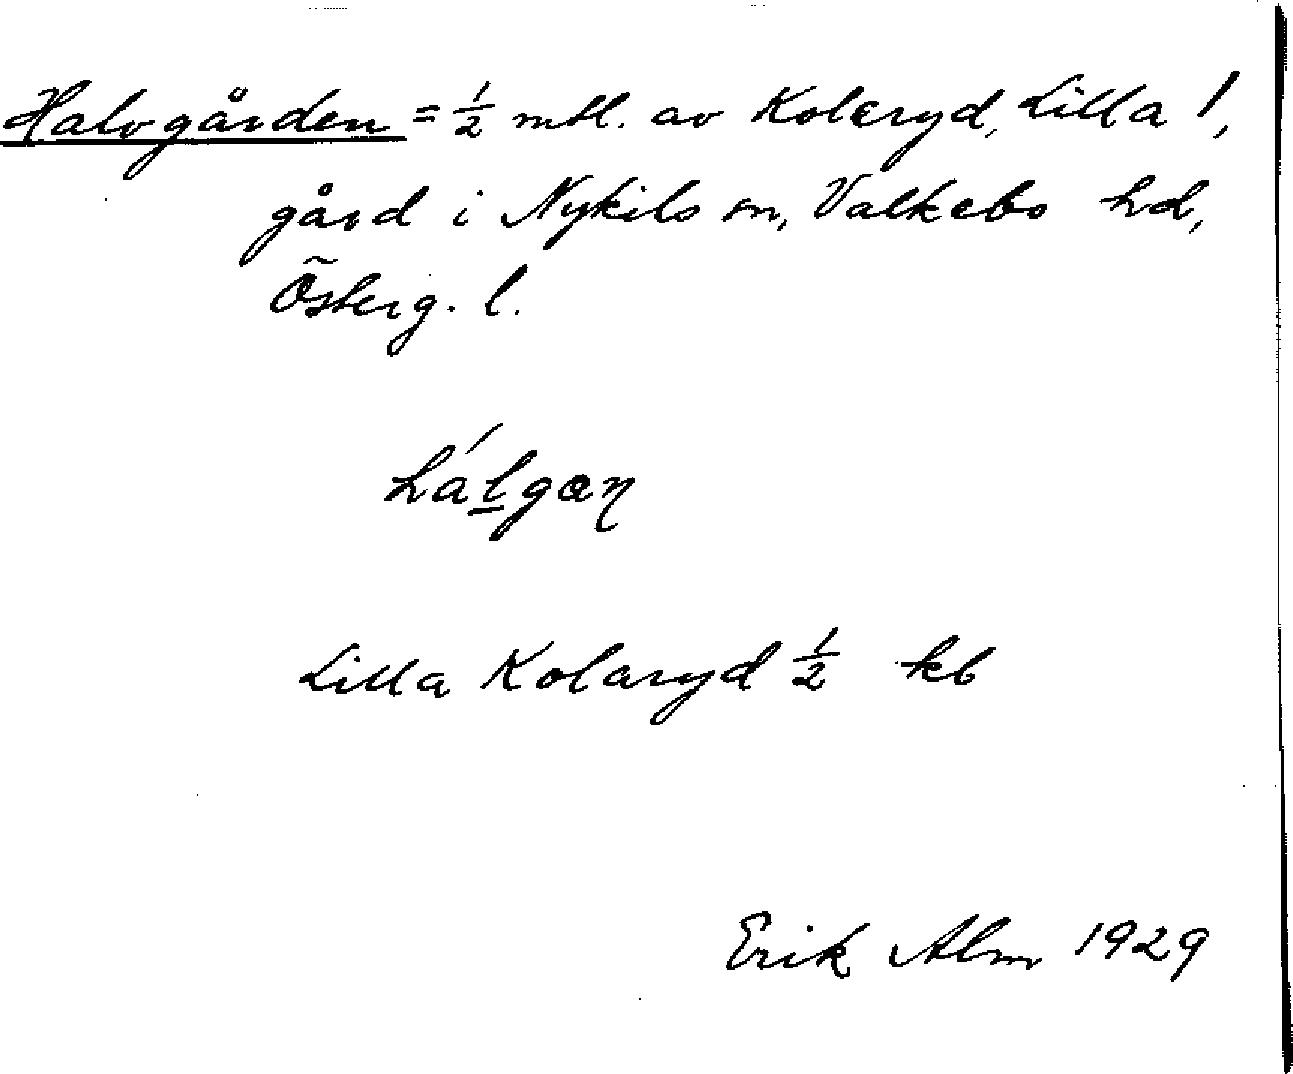 Halvgården = 1/2 mtl. av Koleryd, Lilla 1,
gård i Nykils sn, Valkebo hd,
Österg. l.
hálgan
Lilla Kolaryd 1/2 kb
Erik Alm 1929